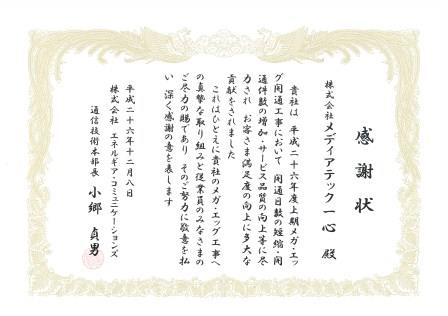 感謝状
株式会社メディアテック一心 殿
貴社は 平成二十六年度上期メガ・エッ
グ開通工事において 開通日数の短縮・開
通件数の増加・サービス品質の向上等に尽
力され お客さま満足度の向上に多大な
貢献をされました
これはひとえに貴社のメガ・エッグ工事へ
の真摯な取り組みと従業員のみなさまの
ご尽力の賜であり そのご努力に敬意を払
い 深く感謝の意を表します
平成二十六年十二月八日
株式会社 エネルギア・コミュニケーションズ
通信技術本部長 小郷 貞男